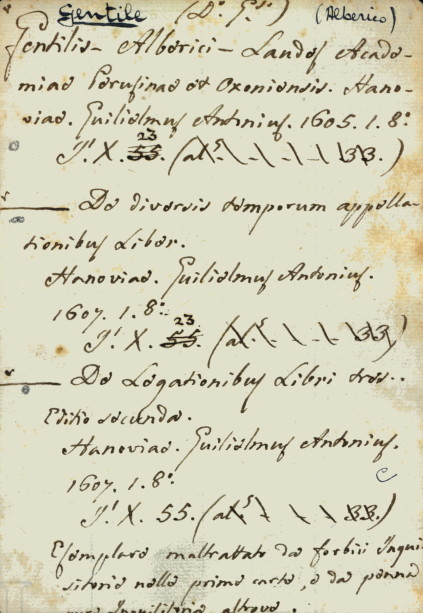 Gentile (D. G.) (Alberico)
Gentilis - Alberici - Laudes Acade-
miae Perusinae et Oxoniensis. Hano-
viae. Guilielmus Antonius. 1605. 1. 8.º
23
I! X. 55. (al 33.)
De diversis temporum appella-
tionibus Liber.
Hanoviae. Guilielmus Antonius.
1607. 1. 8.º
23
I! X. 55. (al 33)
De Legationibus Libri tres.
Editio secunda.
Hanoviae. Guilielmus Antonius.
1607. 1. 8.º
I! X. 55. (al 33.)
Esemplare maltrattato da forbici Inqui-
sitorie nelle prime carte, e da penna
pure Inquisitoria altrove.